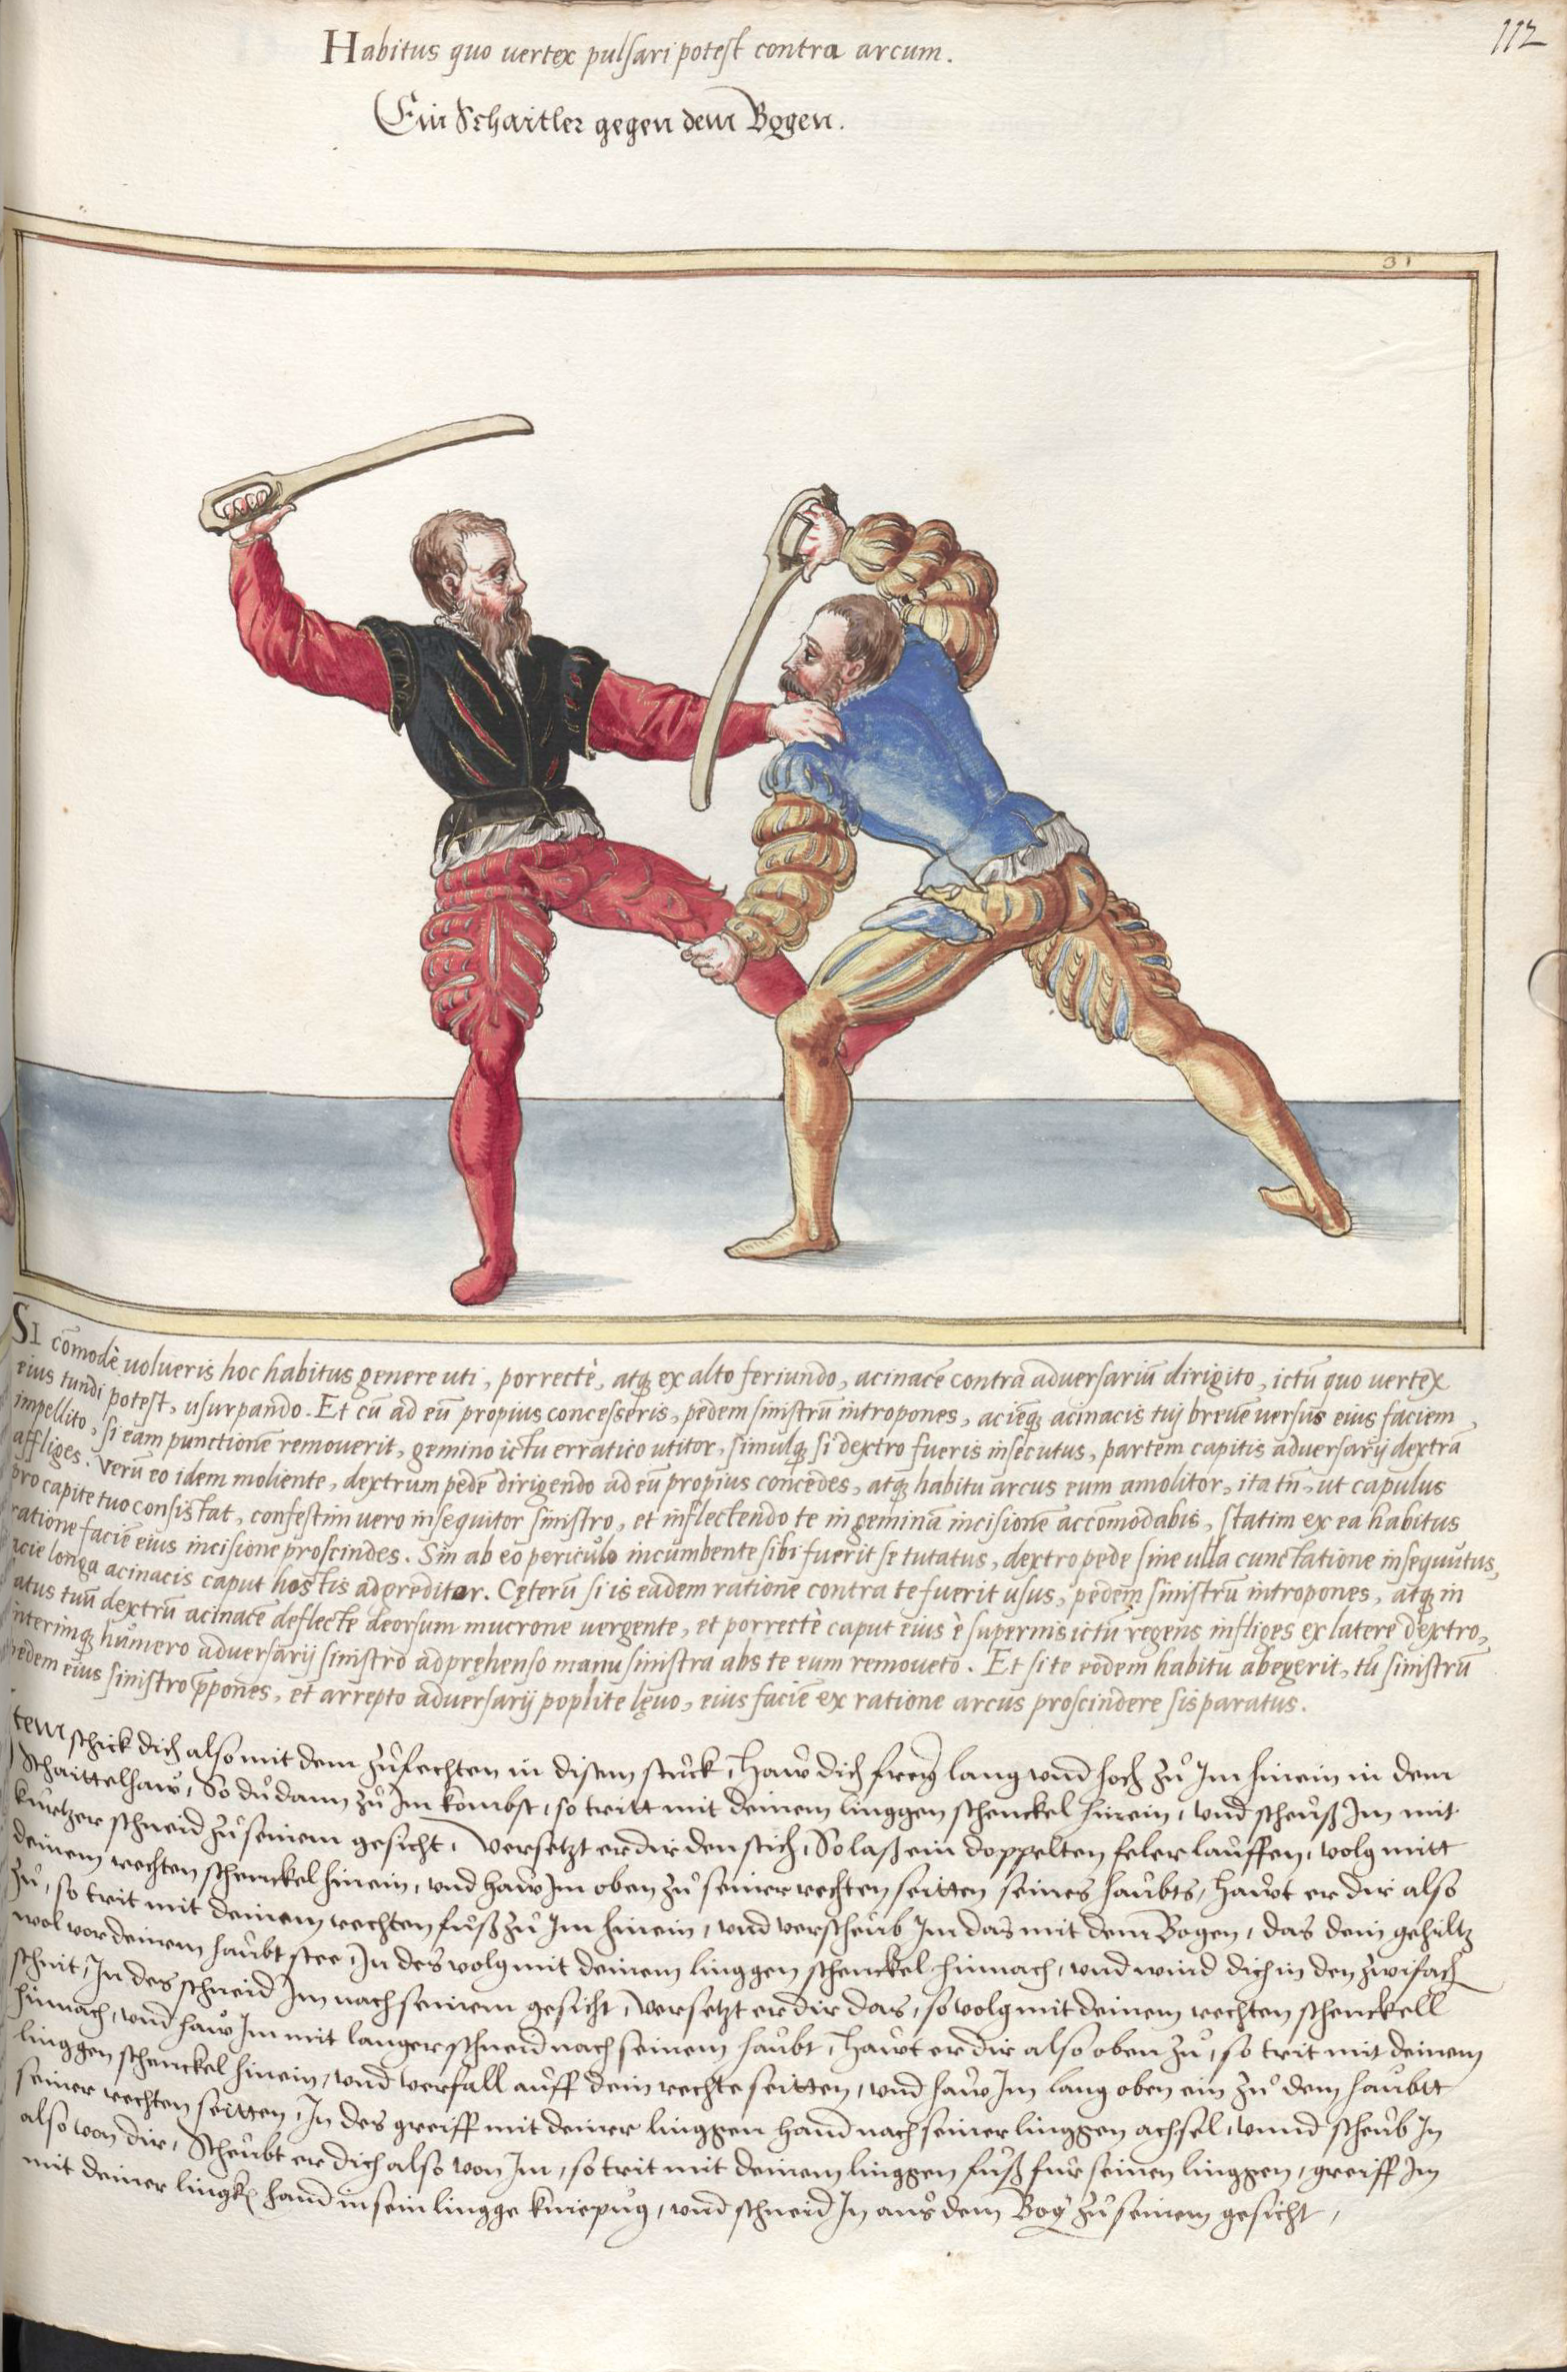 112
Habitus quo vertex pulsari potest contra arcum.
Ein Schaitler gegen dem Bogen.
31
SI cōmodè volueris hoc habitus genere uti, porrectè, atq; ex alto feriundo, acinacē contra adversariū dirigito, ictū quo vertex
eius tundi potest, usurpando. Et cū ad eū propius concesseris, pedem sinistrū intropones, aciēq; acinacis tuj brevē versus eius faciem
impellito, si eam punctionē removerit, gemino ictu erratico utitor, simulq; si dextro fueris insecutus, partem capitis adversarij dextrā
affliges. Verū eo idem moliente, dextrum pedē dirigendo ad eū propius concedes, atq; habitu arcus eum amolitor, ita tñ, ut capulus
pro capite tuo consistat, confestim vero insequitor sinistro, et inflectendo te in geminā incisionē accōmodabis, statim ex ea habitus
ratione faciē eius incisione proscindes. Sin ab eo periculo incumbente sibi fuerit se tutatus, dextro pede sine ulla cunctatione insequutus,
acie longa acinacis caput hostis adgreditor. Cęterū si is eadem ratione contra te fuerit usus, pedem sinistrū intropones, atq; in
latus tuū dextrū acinacē deflecte deorsum mucrone vergente, et porrectè caput eius è supernis ictū regens infliges ex latere dextro,
interimq; humero adversarij sinistro adprehenso manu sinistra abs te eum removeto. Et si te eodem habitu abegerit, tū sinistrū
pedem eius sinistro p̄pones, et arrepto adversarij poplite lęvo, eius faciē ex ratione arcus proscindere sis paratus.
Item schick dich also mit dem zůfechten in disem stuck, Haw dich freÿ lang vnd hoch zů Im hinein in dem
Schaittelhaw, So du dann zů Im kombst, so tritt mit deinem linggen schenckel hinein, vnd scheuß Im mit
kurtzer schneid zů seinem gesicht, Versetzt er dir den stich, So laß ein doppelten feler lauffen, volg mitt
deinem rechten schenckel hinein, vnd haw Im oben zů seiner rechten seitten seines haubts, hawt er dir also
zů, so trit mit deinem rechten fuß zů Im hinein, vnd verscheub Im das mit dem Bogen, das dein gehiltz
wol vor deinem haubt stee, In des volg mit deinem linggen schenckel hinnach, vnd wind dich in den zwifach
schnit, In des schneid Im nach seinem gesicht, Versetzt er dir das, so volg mit deinem rechten schenckell
hinnach, vnd haw Im mit langer schneid nach seinem haubt, Hawt er dir also oben zů, so trit mit deinem
linggen schenckel hinein, vnd verfall auff dein rechte seitten, vnd haw Im lang oben ein zů dem haubtt
seiner rechten seitten, In des greiff mit deiner linggen hand nach seiner linggen achsel, vnnd scheub In
also von dir, Scheubt er dich also von Im, so trit mit deinem linggen fuß fur seinen linggen, greiff Im
mit deiner lingk hand in sein lingge kniepug, vnd schneid In aus dem Bog zů seinem gesicht,